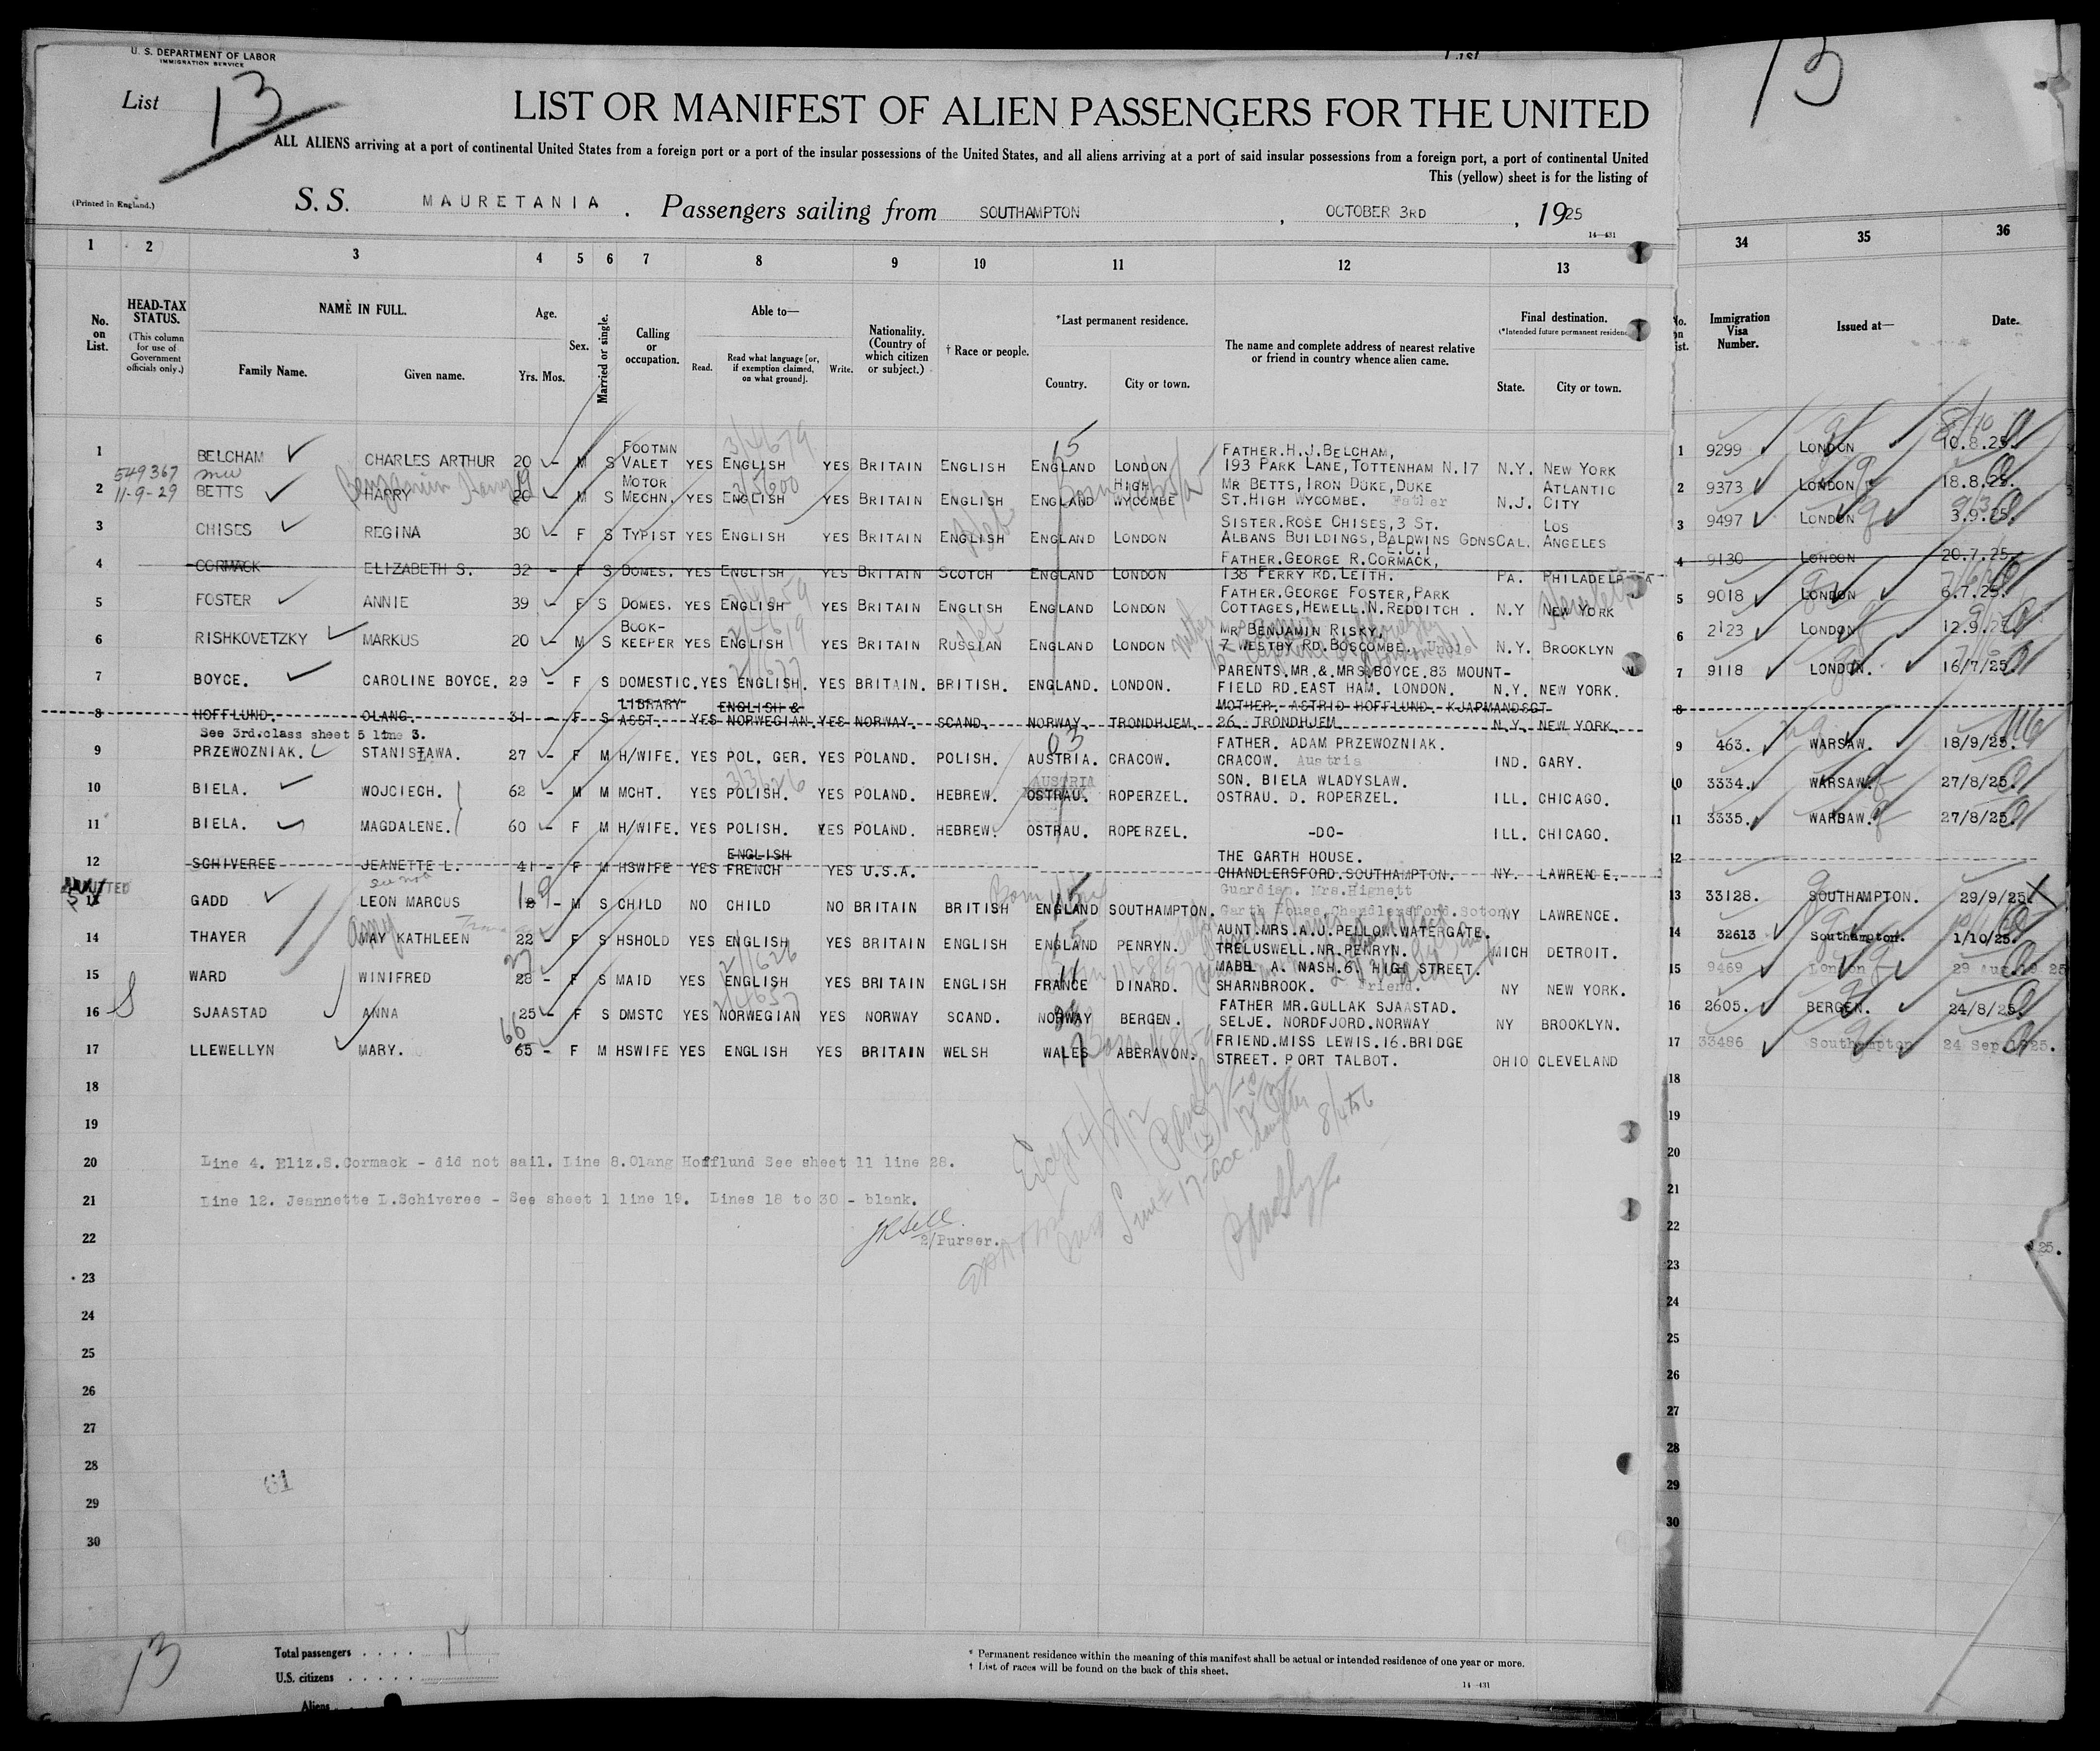 U. S. DEPARTMENT OF LABOR
IMMIGRATION SERVICE
List 13
13
LIST OR MANIFEST OF ALIEN PASSENGERS FOR THE UNITED
ALL ALIENS arriving at a port of continental United States from a foreign port or a port of the insular possessions of the United States, and all aliens arriving at a port of said insular possessions from a foreign port, a port of continental United
This (yellow) sheet is for the listing of
(Printed in England.)
S. S. MAURETANIA. Passengers sailing from SOUTHAMPTON, OCTOBER 3RD, 1925
14—431
1 2 3 4 5 6 7 8 9 10 11 12 13 34 35 36
No. on List.
HEAD-TAX STATUS.
(This column for use of Government officials only.)
NAME IN FULL.
Family Name. Given name.
Age.
Yrs. Mos.
Sex.
Married or single.
Calling or occupation.
Able to—
Read. Read what language [or, if exemption claimed, on what ground]. Write.
Nationality. (Country of which citizen or subject.)
† Race or people.
*Last permanent residence.
Country. City or town.
The name and complete address of nearest relative or friend in country whence alien came.
Final destination.
(*Intended future permanent residence
State. City or town.
Immigration Visa Number.
Issued at—
Date.
1 BELCHAM CHARLES ARTHUR 20 - M S FOOTMN VALET YES ENGLISH YES BRITAIN ENGLISH ENGLAND LONDON FATHER.H.J.BELCHAM, 193 PARK LANE, TOTTENHAM N.17 N.Y. NEW YORK 1 9299 LONDON 10.8.25.
549367
11-9-29
2 BETTS HARRY 20 - M S MOTOR MECHN. YES ENGLISH YES BRITAIN ENGLISH ENGLAND HIGH WYCOMBE MR BETTS, IRON DUKE, DUKE ST.HIGH WYCOMBE. Father N.J. ATLANTIC CITY 2 9373 LONDON 18.8.25.
3 CHISES REGINA 30 - F S TYPIST YES ENGLISH YES BRITAIN ENGLISH ENGLAND LONDON SISTER.ROSE CHISES, 3 ST. ALBANS BUILDINGS, BALDWINS GDNS E.C.1 CAL. LOS ANGELES 3 9497 LONDON 3.9.25.
4 CORMACK ELIZABETH S. 32 - F S DOMES. YES ENGLISH YES BRITAIN SCOTCH ENGLAND LONDON FATHER.GEORGE R.CORMACK, 138 FERRY RD.LEITH. PA. PHILADELP 4 9130 LONDON 20.7.25.
5 FOSTER ANNIE 39 - F S DOMES. YES ENGLISH YES BRITAIN ENGLISH ENGLAND LONDON FATHER.GEORGE FOSTER, PARK COTTAGES, HEWELL.N.REDDITCH. N.Y NEW YORK 5 9018 LONDON 6.7.25.
6 RISHKOVETZKY MARKUS 20 - M S BOOK-KEEPER YES ENGLISH YES BRITAIN RUSSIAN ENGLAND LONDON MR BENJAMIN RISKY, 7 WESTBY RD.BOSCOMBE. N.Y. BROOKLYN 6 2123 LONDON 12.9.25
7 BOYCE. CAROLINE BOYCE. 29 - F S DOMESTIC. YES ENGLISH. YES BRITAIN. BRITISH. ENGLAND. LONDON. PARENTS.MR.& MRS.BOYCE.83 MOUNT-FIELD RD.EAST HAM. LONDON. N.Y. NEW YORK. 7 9118 LONDON. 16/7/25.
8 HOFFLUND. OLANG. 31 - F S LIBRARY ASST. YES ENGLISH & NORWEGIAN. YES NORWAY. SCAND. NORWAY. TRONDHJEM. MOTHER. ASTRID HOFFLUND. KJAPMANDSGT 26. TRONDHJEM N.Y. NEW YORK. 8
See 3rd.class sheet 5 line 3.
9 PRZEWOZNIAK. STANISLAWA. 27 - F M H/WIFE. YES POL. GER. YES POLAND. POLISH. AUSTRIA. CRACOW. FATHER. ADAM PRZEWOZNIAK. CRACOW. Austria IND. GARY. 9 463. WARSAW. 18/9/25.
10 BIELA. WOJCIECH. 62 - M M MCHT. YES POLISH. YES POLAND. HEBREW. AUSTRIA OSTRAU. ROPERZEL. SON. BIELA WLADYSLAW. OSTRAU. D. ROPERZEL. ILL. CHICAGO. 10 3334. WARSAW. 27/8/25.
11 BIELA. MAGDALENE. 60 - F M H/WIFE. YES POLISH. YES POLAND. HEBREW. OSTRAU. ROPERZEL. -DO- ILL. CHICAGO. 11 3335. WARSAW. 27/8/25.
12 SCHIVEREE JEANETTE L. 41 - F M HSWIFE YES ENGLISH FRENCH YES U.S.A. THE GARTH HOUSE. CHANDLERSFORD.SOUTHAMPTON. NY. LAWRENCE. 12
13 GADD LEON MARCUS - M S CHILD NO CHILD NO BRITAIN BRITISH ENGLAND SOUTHAMPTON. Guardian. Mrs.Hignett Garth House Chandlersford.Soton NY LAWRENCE. 13 33128. SOUTHAMPTON. 29/9/25.
14 THAYER MAY KATHLEEN 22 - F S HSHOLD YES ENGLISH YES BRITAIN ENGLISH ENGLAND PENRYN. AUNT.MRS.A.J.PELLOW.WATERGATE. TRELUSWELL.NR.PENRYN. MICH DETROIT. 14 32613 Southampton. 1/10/25.
15 WARD WINIFRED 28 - F S MAID YES ENGLISH YES BRITAIN ENGLISH FRANCE DINARD. MABL A. NASH.6. HIGH STREET. SHARNBROOK. Friend. NY NEW YORK. 15 9469 London 29 Aug.19 25
16 SJAASTAD ANNA 25 - F S DMSTC YES NORWEGIAN YES NORWAY SCAND. NORWAY BERGEN. FATHER MR.GULLAK SJAASTAD. SELJE. NORDFJORD.NORWAY NY BROOKLYN. 16 2605. BERGEN. 24/8/25.
17 LLEWELLYN MARY. 65 - F M HSWIFE YES ENGLISH YES BRITAIN WELSH WALES ABERAVON. FRIEND.MISS LEWIS.16.BRIDGE STREET. PORT TALBOT. OHIO CLEVELAND 17 33486 Southampton 24 Sep.1925.
18 18
19 19
20 Line 4. Eliz.S.Cormack - did not sail. Line 8.Olang Hofflund See sheet 11 line 28. 20
21 Line 12. Jeannette L.Schiveree - See sheet 1 line 19. Lines 18 to 30 - blank. 21
22 2/Purser. 22
25.
23 23
24 24
25 25
26 26
27 27
28 28
29 29
30 30
61
13
Total passengers . . . . 17
U.S. citizens . . . . .
Aliens
* Permanent residence within the meaning of this manifest shall be actual or intended residence of one year or more.
† List of races will be found on the back of this sheet.
14—431